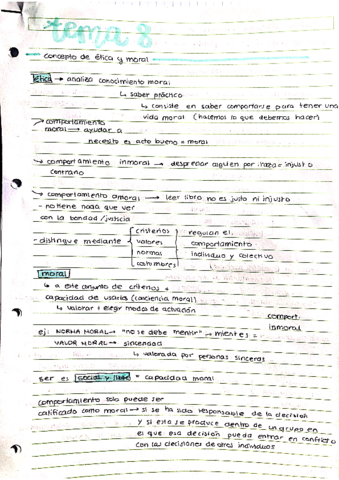 tema 8
concepto de ética y moral
ética → analiza conocimiento moral
↳ saber práctico
↳ consiste en saber comportarse para tener una
vida moral (hacemos lo que debemos hacer)
→ comportamiento
moral → ayudar a
necesito es acto bueno = moral
→ comportamiento inmoral → despreciar alguien por raza = injusto
contrario
→ comportamiento amoral → leer libro no es justo ni injusto
- no tiene nada que ver
con la bondad/justicia
- distingue mediante
criterios
valores
normas
costumbres
regulan el
comportamiento
individual y colectivo
moral
↳ a este conjunto de criterios +
capacidad de usarlos (conciencia moral)
↳ valorar + elegir modos de actuación
ej: NORMA MORAL → "no se debe mentir" → mientes =
comport.
inmoral
VALOR MORAL → sinceridad
↳ valorada por personas sinceras
ser es social y libre = capacidad moral
comportamiento solo puede ser
calificado como moral → si se ha sido responsable de la decisión
y si esto se produce dentro de un grupo en
el que esa decisión pueda entrar en conflicto
con las decisiones de otros individuos